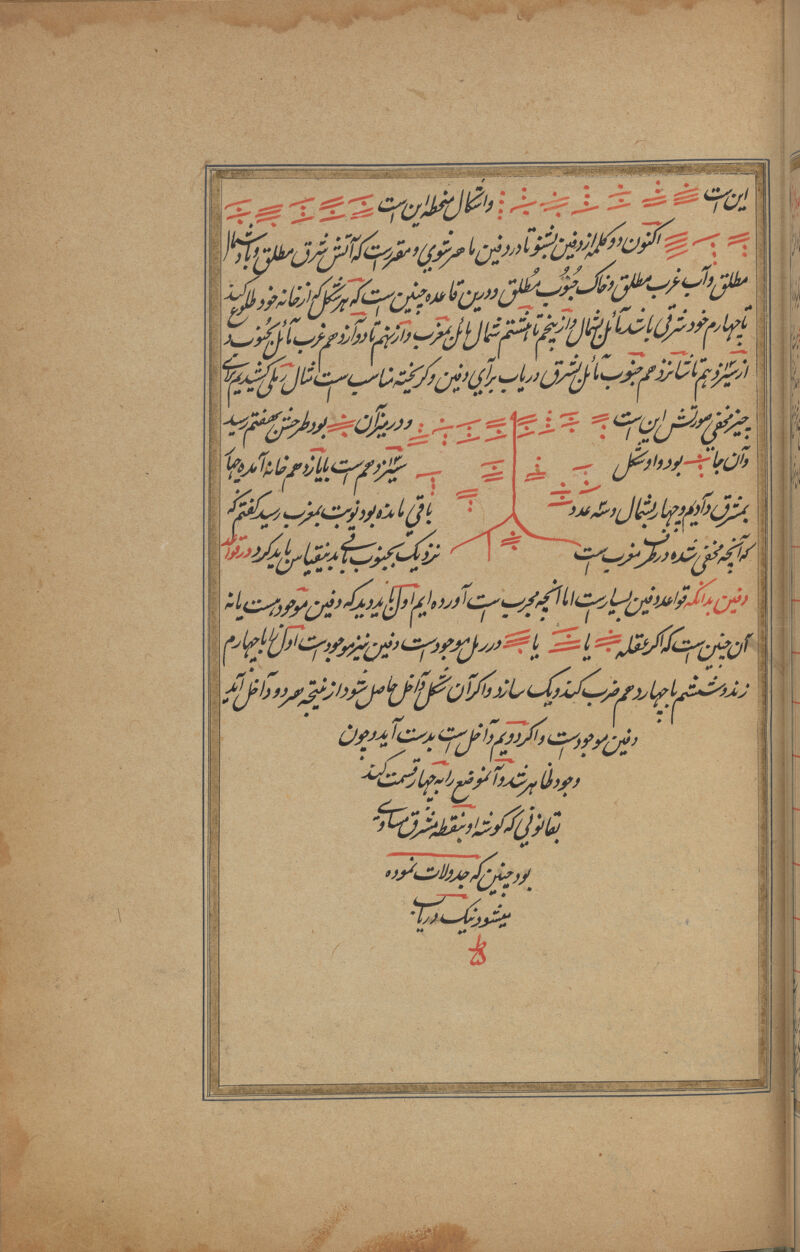 این است و اشکال منحط این است
اکنون دو کلمه از دفین بشنو تا در دفین ماهر شوی و مقرر است که آتش شرق مطلق و باد شمال
مطلق و آب غرب مطلق و خاک جنوب مطلق و درین قاعده چنین است که هر شکل که از خانه خود طلوع کند
تا چهارم خود شرقی باشد مائل بشمال و از پنجم تا هشتم شمال مائل بمغرب و از نهم تا دوازدهم غرب مائل بجنوب
از سیزدهم تا شانزدهم جنوب مائل بشرق دریاب برای دفین و گریخته مناسب است مثال رملی کشیدیم برای
چیز مخفی صورتش این است و در میزان بود طرحش بهفتم رسید
و آن جا بود و او شکل سیزدهم است بایازدهم خانه آمده چهار
بمشرق دادیم و چهار بشمال و سه عدد باقی مانده بود نوبت بمغرب رسید گفتم که
که آنچه مخفی شده در طرف مغرب است نزدیک بجنوب باقی بدینقیاس باید کرد در قواعد
دفین بدانکه قواعد دفین بسیار است اما آنچه مجرب است آورده ایم اول باید دید که دفین موجود هست یا نه
آن چنین است که اگر عقله یا یا در رمل موجود است دفین نیز موجود است اول را با چهارم
زند و ششم با چهاردهم ضرب کند و یک سازد و اگر آن شکل داخل حاصل شود و از نتیجه هر دو داخل آید
دفین موجود است و اگر دویم داخل است بدست آید و چون
وجود ظاهر شد و آنموضع را به چهار قسمت کند
بقانونی که گوشه او بنقطه مشرق مساوی
بود چنین که جدولات نموده
میشود نیک دریاب